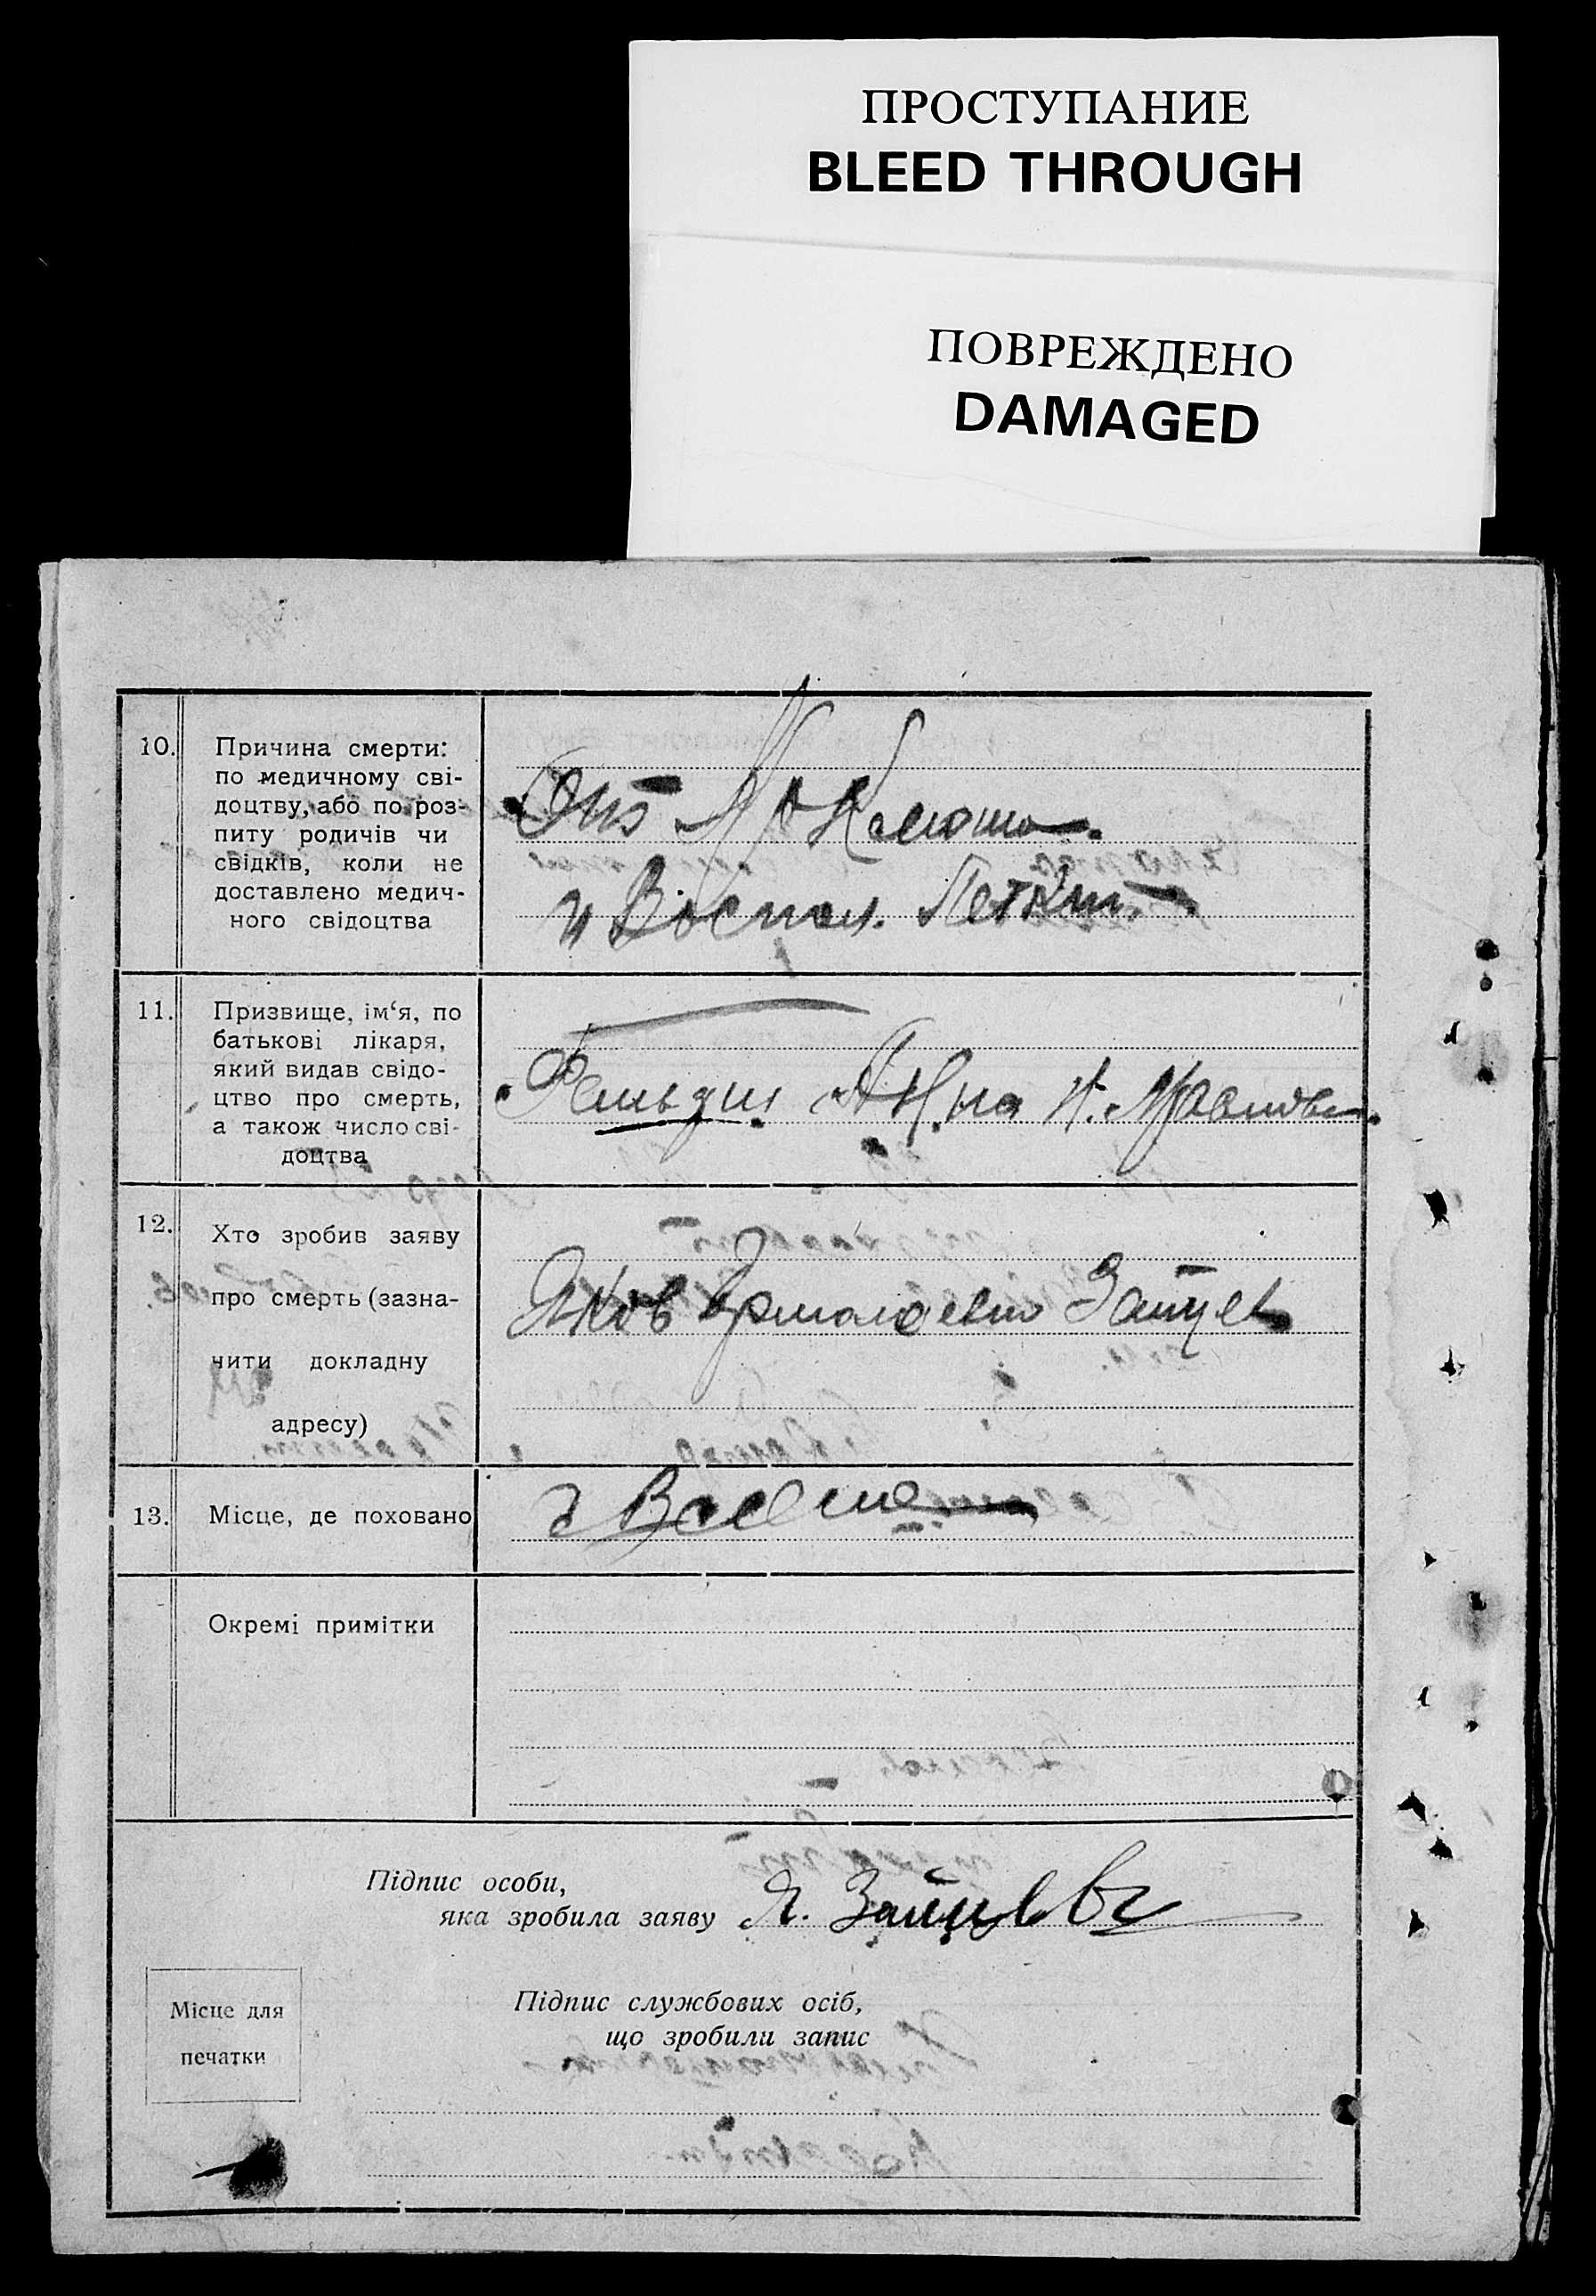 ПРОСТУПАНИЕ
BLEED THROUGH
ПОВРЕЖДЕНО
DAMAGED
10.
Причина смерти:
по медичному сві-
доцтву, або по роз-
питу родичів чи
свідків, коли не
доставлено медич-
ного свідоцтва
и Воспал.
11.
Призвище, ім‘я, по
батькові лікаря,
який видав свідо-
цтво про смерть,
а також число сві-
доцтва
Анна
12.
Хто зробив заяву
про смерть (зазна-
чити докладну
адресу)
Яков Ермолаевич Зайцев
13.
Місце, де поховано
Окремі примітки
Підпис особи,
яка зробила заяву Я. Зайцевъ
Місце для
печатки
Підпис службових осіб,
що зробили запис